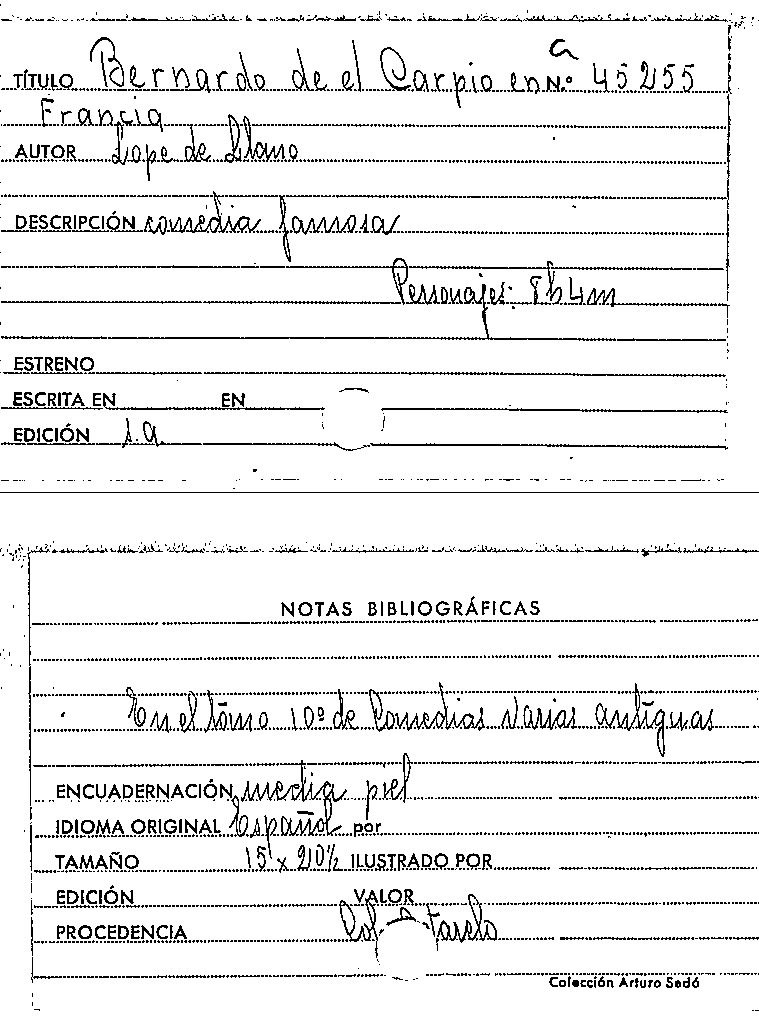 a
TÍTULO Bernardo de el Carpio en N.º 45255
Francia
AUTOR Lope de Llano
DESCRIPCIÓN comédia famosa
Personajes: 8h4m
ESTRENO
ESCRITA EN EN
EDICIÓN s.a.
NOTAS BIBLIOGRÁFICAS
En el tómo 10º de Comedias varias antiguas
ENCUADERNACIÓN media piel
IDIOMA ORIGINAL Español por
TAMAÑO 15 x 20½ ILUSTRADO POR
EDICIÓN VALOR
PROCEDENCIA Col.
Colección Arturo Sedó